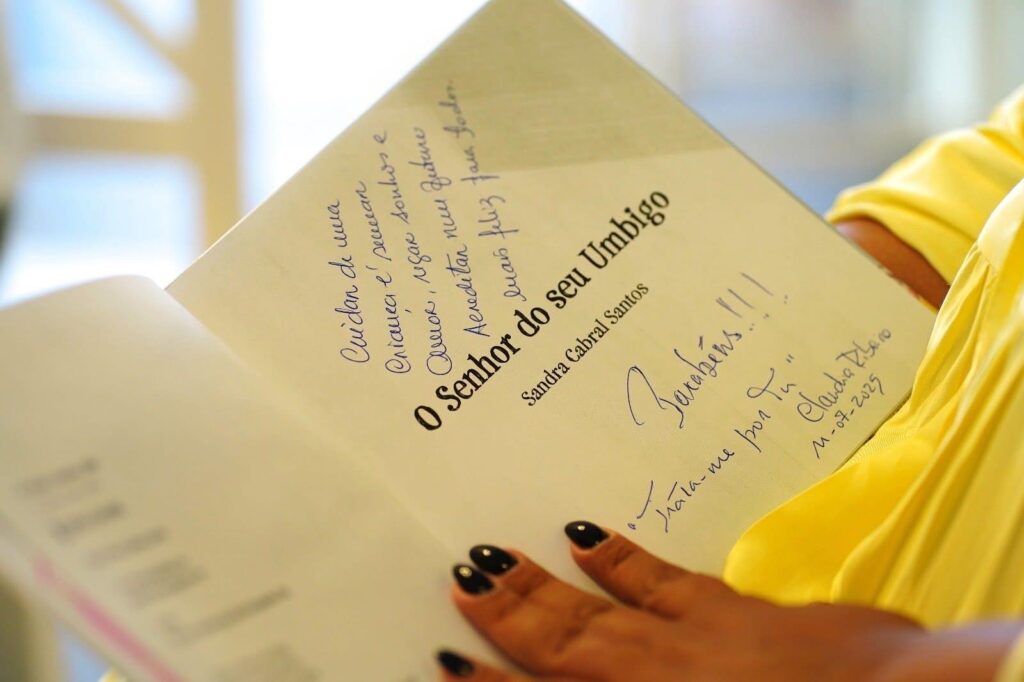 Cuidar de uma
Criança é semear
Amor, regar sonhos e
Acreditar num futuro
mais feliz para todos.
O Senhor do seu Umbigo
Sandra Cabral Santos
Parabéns!!!
"Trata-me por Tu"
Claudia Ribeiro
11-07-2025